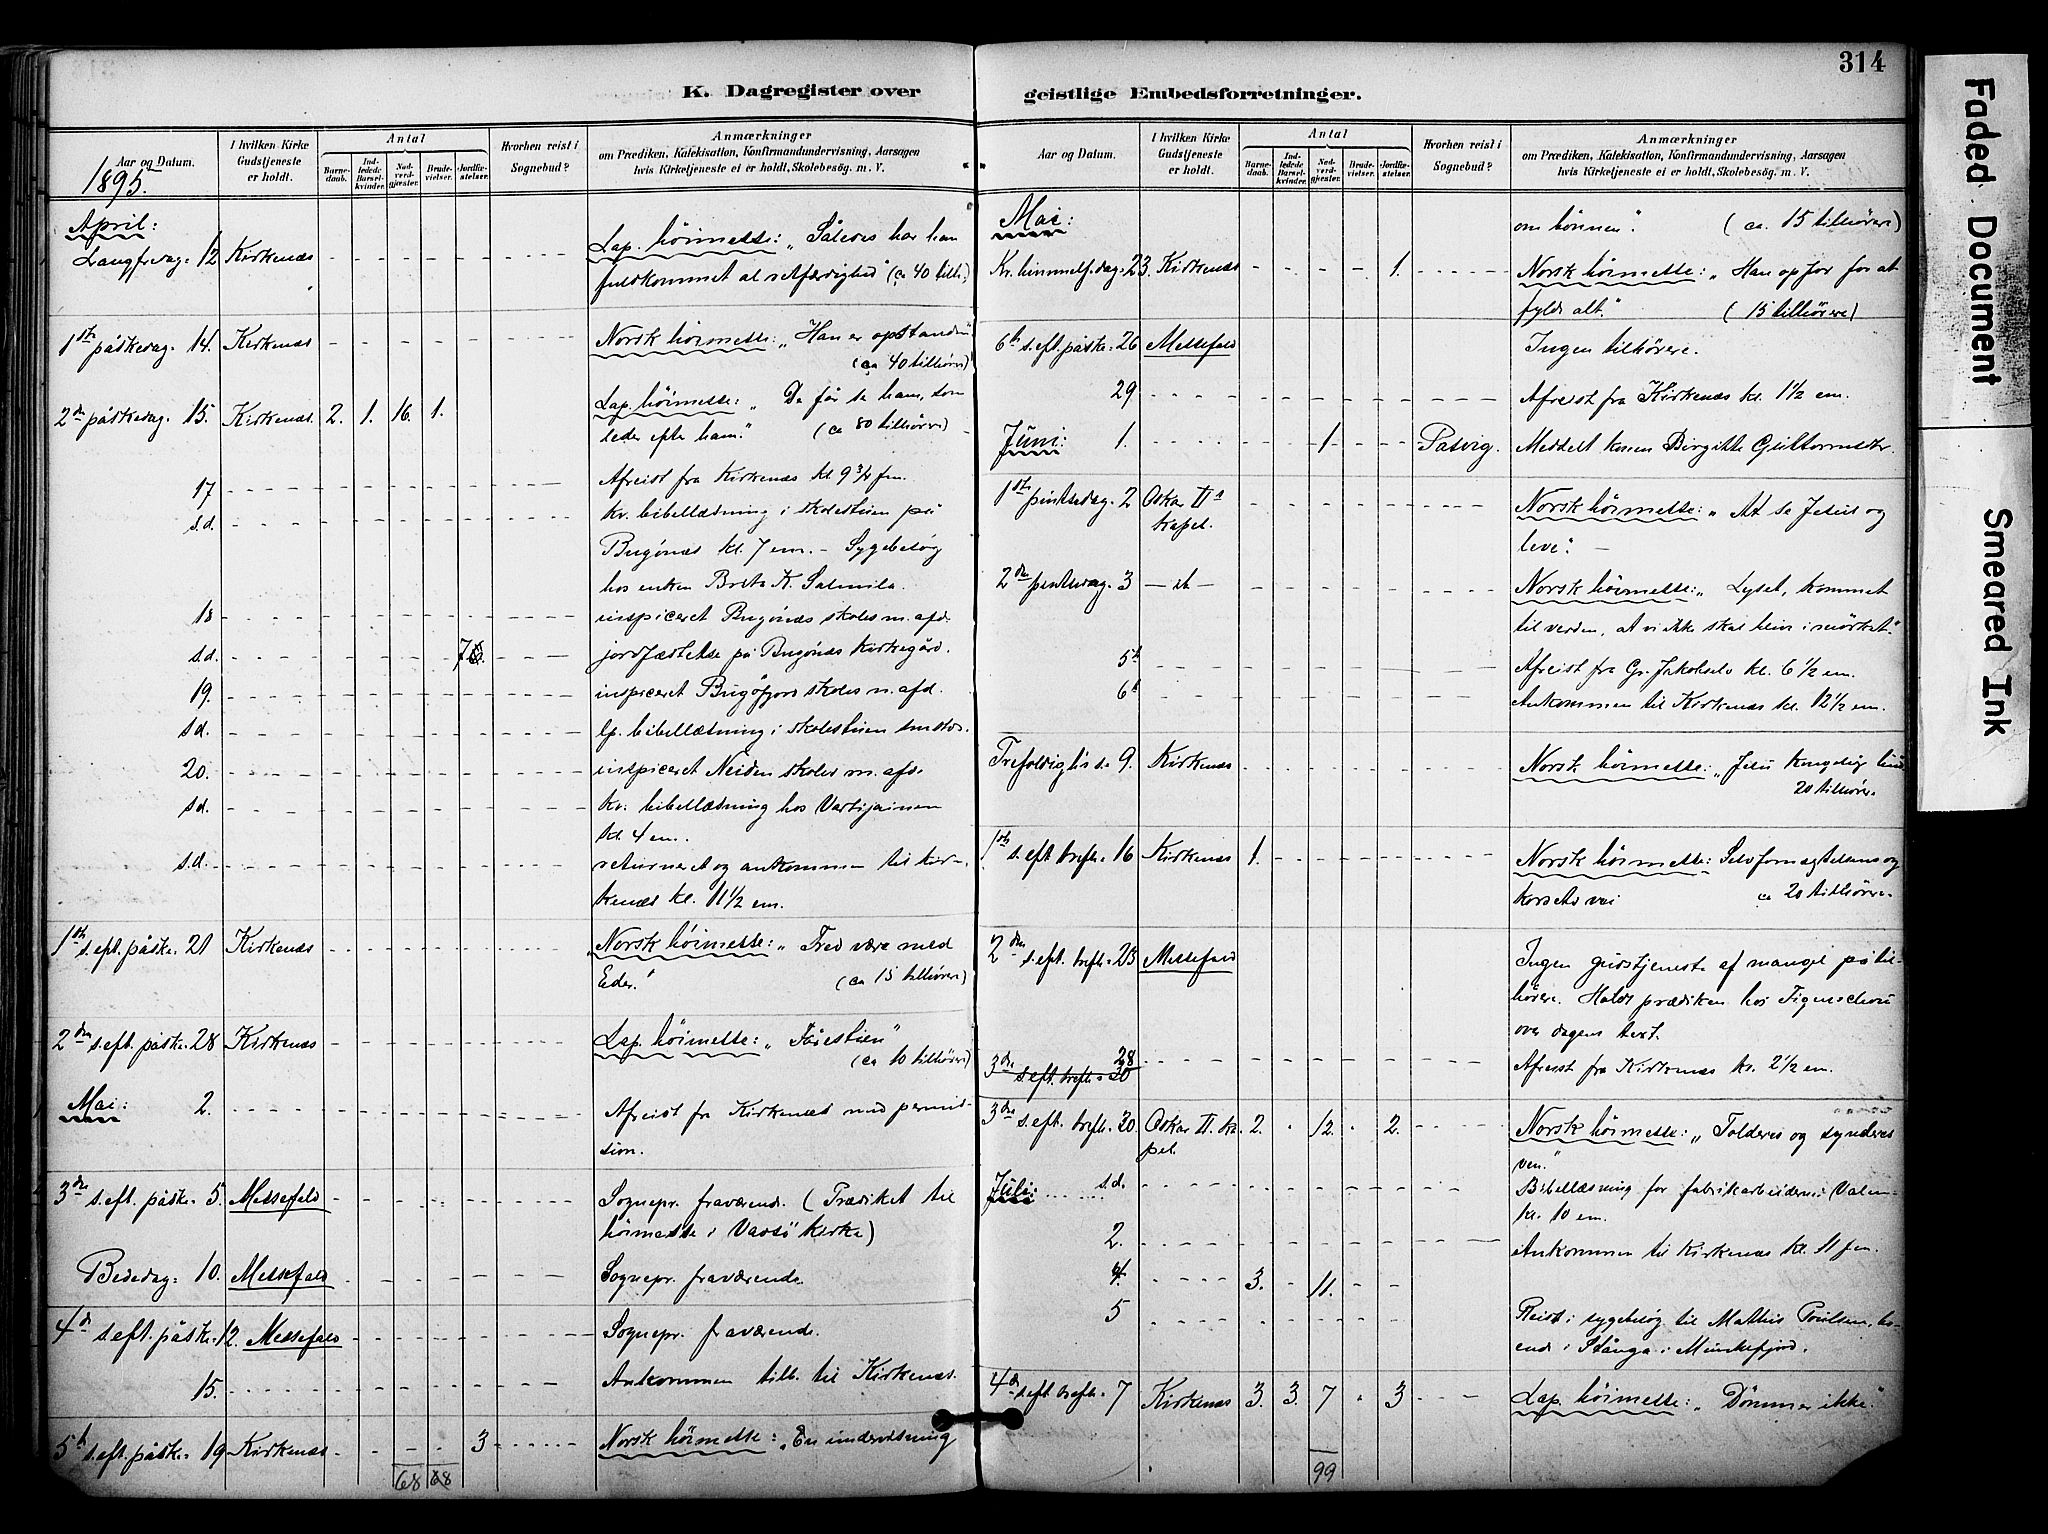 314
K. Dagregister over geistlige Embedsforretninger.
Aar og Datum.
I hvilken Kirke Gudstjeneste er holdt.
Antal
Barnedaab.
Indledede Barselkvinder.
Nadverdgjester.
Brudevielser.
Jordfæstelser.
Hvorhen reist i Sognebud?
Anmærkninger
om Prædiken, Katekisation, Konfirmandundervisning, Aarsagen
hvis Kirketjeneste ei er holdt, Skolebesög. m. V.
1895.
April:
Langfredag 12 Kirkenæs Lap. höimesse: „Således har han
fuldkommet al retfærdighed" (ca 40 tilh.)
1ste påskedag 14. Kirkenæs Norsk höimesse: „Han er opstanden"
(ca 40 tilhörere)
2den påskedag 15. Kirkenæs. 2. 1. 16. 1. Lap. höimesse: „De får se ham, som
leder efter ham." (ca 80 tilhörere)
17 Afreist fra Kirkenæs kl 9 3/4 fm.
s.d. kv. bibellæsning i skolestuen på
Bugönæs kl. 7 em. – Sygebesög
hos enken Brita K. Salmila.
18 inspiceret Bugönæs skoles m. afd.
s.d. 7 jordfæstelse på Bugönæs Kirkegård.
19. inspiceret Bugöfjord skoles m. afd.
s.d. lp. bibellæsning i skolestuen smsts.
20. inspiceret Neiden skoles m. afd.
s.d. kv. bibellæsning hos Vartijainen
kl. 4 em.
s.d. returneret og ankommen til Kir-
kenæs kl. 11 1/2 em.
1ste s. eft. påske 21 Kirkenæs Norsk höimesse: „Fred være med
Eder." (ca 15 tilhörere)
2den s. eft. påske 28 Kirkenæs Lap. höimesse: „Fårestien"
(ca 10 tilhörere)
Mai: 2. Afreist fra Kirkenæs med permis-
sion.
3die s. eft. påske 5. Messefald Sognepr. fraværende. (Prædiket til
höimesse i Vadsö kirke)
Bededag 10. Messefald Sognepr. fraværende.
4de s. eft. påske 12. Messefald Sognepr. fraværende.
15. Ankommen tilb. til Kirkenæs.
5te s. eft. påske 19 Kirkenæs 3 Norsk höimesse: „En undervisning
68 68
Aar og Datum.
I hvilken Kirke Gudstjeneste er holdt.
Antal
Barnedaab.
Indledede Barselkvinder.
Nadverdgjester.
Brudevielser.
Jordfæstelser.
Hvorhen reist i Sognebud?
Anmærkninger
om Prædiken, Katekisation, Konfirmandundervisning, Aarsagen
hvis Kirketjeneste ei er holdt, Skolebesög. m. V.
Mai: om bönnen". (ca. 15 tilhörere)
Kr. himmelf. dag 23. Kirkenæs 1. Norsk höimesse: „Han opfor for at
fylde alt." (15 tilhörere)
6te s. eft. påske 26 Messefald Ingen tilhörere.
29 Afreist fra Kirkenæs kl. 1 1/2 em.
Juni: 1. 1 Pasvig. Meddelt konen Birgitte Guttormsdtr.
1ste pintsedag 2 Oskar IIs kapel. Norsk höimesse: „At se Jesus og
leve". –
2den pintsedag 3 – do – Norsk höimesse: „Lyset, kommet
til verden, at vi ikke skal blive i mörket."
5te Afreist fra Gr. Jakobselv kl. 6 1/2 em.
6te Ankommen til Kirkenæs kl. 12 1/2 em.
Trefoldigh. s. 9. Kirkenæs Norsk höimesse: „Jesu kongelige
20 tilhörere
1ste s. eft. trefh. 16 Kirkenæs 1. Norsk höimesse: Selvfornægtelsens og
korsets vei ca 20 tilhörere
2den s. eft. trefh. 23 Messefald Ingen gudstjeneste af mangel på til-
hörere. Holdt prædiken hos Figenschou
over dagens text.
3die s. eft. trefh. 30
28 Afreist fra Kirkenæs kl. 2 1/2 em.
3die s. eft. trefh. 30. Oskar II. ka-
pel. 2. 12. 2. Norsk höimesse: „Tolderes og synderes
ven."
Juli: s.d. Bibellæsning for fabrikarbeiderne i
kl. 10 em.
2. Ankommen til Kirkenæs kl. 11 fm.
4. 3. 11.
5 Reist i sygebesög til Mathis Poulsen, bo-
ende i Stånga i Munkefjord.
4de s. eft. trefh. 7 Kirkenæs 3. 3. 7 3 Lap. höimesse: „Dömmer ikke."
99
Faded Document
Smeared Ink